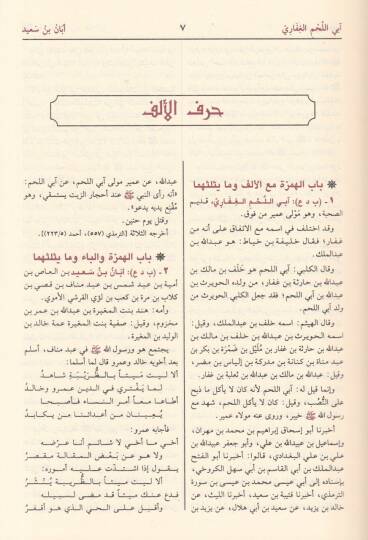 آبي اللحم الغفاري
٧
أبان بن سعيد
حرف الألف
❋ باب الهمزة مع الألف وما يثلثهما
١ - (ب د ع): آبي اللَّحْم الغِفَارِيّ، قديم
الصحبة، وهو مَوْلى عمير من فوق.
وقد اختلف في اسمه مع الاتفاق على أنه من
غفار؛ فقال خليفة بن خياط: هو عبدالله بن
عبدالملك.
وقال الكلبي: آبي اللحم هو خَلَف بن مالك بن
عبدالله بن حارثة بن غفار، من ولده الحويرث بن
عبدالله بن آبي اللحم؛ فقد جعل الكلبي الحويرث من
ولد آبي اللحم.
وقال الهيثم: اسمه خلف بن عبدالملك، وقيل:
اسمه الحويرث بن عبدالله بن خلف بن مالك بن
عبدالله بن حارثة بن غفار بن مُلَيْل بن ضَمْرة بن بكر بن
عبد مناة بن كنانة بن مدركة بن إلياس بن مضر،
وقيل: عبدالله بن مالك بن عبدالله بن ثعلبة بن غفار.
وإنما قيل له: آبي اللحم لأنه كان لا يأكل ما ذبح
على النُّصُب، وقيل: كان لا يأكل اللحم، شهد مع
رسول الله ﷺ خيبر، وروى عنه مولاه عمير.
أخبرنا أبو إسحاق إبراهيم بن محمد بن مهران،
وإسماعيل بن عبيدالله بن علي، وأبو جعفر عبيدالله بن
علي بن علي البغدادي، قالوا: أخبرنا أبو الفتح
عبدالملك بن أبي القاسم بن أبي سهل الكروخي،
بإسناده إلى أبي عيسى محمد بن عيسى بن سورة
الترمذي، أخبرنا قتيبة بن سعيد، أخبرنا الليث، عن
خالد بن يزيد، عن سعيد بن أبي هلال، عن يزيد بن
عبدالله، عن عمير مولى آبي اللحم، عن آبي اللحم:
«أنه رأى النبي ﷺ عند أحجار الزيت يستسقي، وهو
مُقْنِع يديه يدعو».
وقتل يوم حنين.
أخرجه الثلاثة [الترمذي (٥٥٧)، أحمد (٢٢٣/٥)].
❋ باب الهمزة والباء وما يثلثهما
٢ - (ب د ع): أبَانُ بنُ سَعيد بن العاص بن
أمية بن عبد شمس بن عبد مناف بن قصي بن
كلاب بن مرة بن كعب بن لؤي القرشي الأموي.
وأمه: هند بنت المغيرة بن عبدالله بن عمر بن
مخزوم، وقيل: صفية بنت المغيرة عمة خالد بن
الوليد بن المغيرة.
يجتمع هو ورسول الله ﷺ في عبد مناف، أسلم
بعد أخويه خالد وعمرو قال لما أسلما:
ألا ليت ميتاً بالظُّرَيْبَةِ شاهدٌ
لما يَفْتَري في الدين عمرو وخالدُ
أطاعا معاً أمر النساء فأصبحا
يُعِينان من أعدائنا من يكابدُ
فأجابه عمرو:
أخي ما أخي لا شاتم أنا عرضَه
ولا هو عن بعض المقالة مقصرُ
يقول إذا اشتدت عليه أموره:
ألا ليت ميتاً بالظُّرَيْبَةِ يُنْشَرُ
فدع عنك ميتاً قد مضى لسبيله
وأقبل على الحي الذي هو أفقرُ